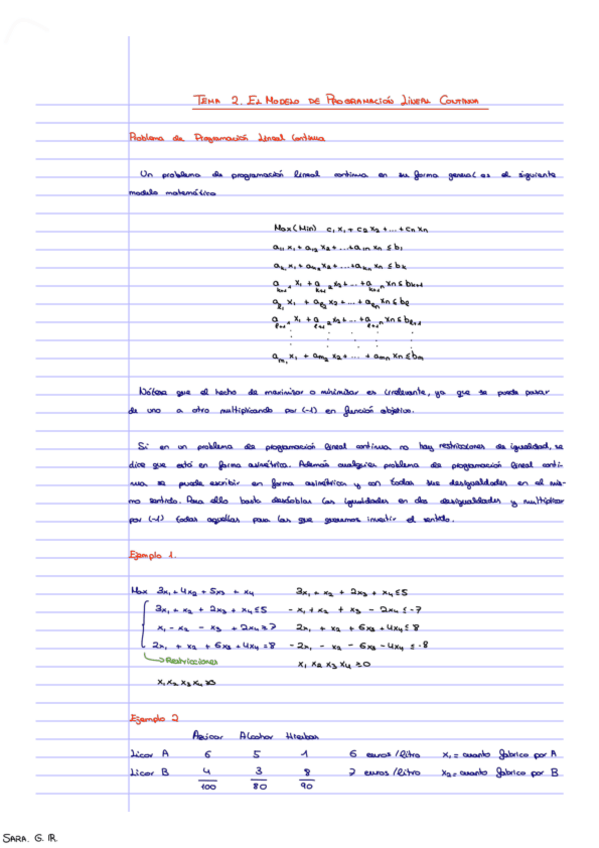 TEMA 2. EL MODELO DE PROGRAMACIÓN LINEAL CONTINUA
Problema de Programación Lineal Continua
Un problema de programación lineal continua en su forma general es el siguiente
modelo matemático
Max (Min) c₁x₁ + c₂x₂ + ... + cₙxₙ
a₁₁x₁ + a₁₂x₂ + ... + a₁ₙxₙ ≤ b₁
aₖ₁x₁ + aₖ₂x₂ + ... + aₖₙxₙ ≤ bₖ
aₖ₊₁ ₁x₁ + aₖ₊₁ ₂x₂ + ... + aₖ₊₁ ₙxₙ ≤ bₖ₊₁
aℓ₁x₁ + aℓ₂x₂ + ... + aℓₙxₙ ≤ bℓ
aℓ₊₁ ₁x₁ + aℓ₊₁ ₂x₂ + ... + aℓ₊₁ ₙxₙ ≤ bℓ₊₁
aₘ₁x₁ + aₘ₂x₂ + ... + aₘₙxₙ ≤ bₘ
Nótese que el hecho de maximizar o minimizar es irrelevante, ya que se puede pasar
de uno a otro multiplicando por (-1) en función objetivo.
Si en un problema de programación lineal continua no hay restricciones de igualdad, se
dice que está en forma asimétrica. Además cualquier problema de programación lineal conti-
nua se puede escribir en forma asimétrica y con todas sus desigualdades en el mis-
mo sentido. Para ello basta desdoblar las igualdades en dos desigualdades y multiplicar
por (-1) todas aquellas para las que queramos invertir el sentido.
Ejemplo 1.
Max 3x₁ + 4x₂ + 5x₃ + x₄ 3x₁ + x₂ + 2x₃ + x₄ ≤ 5
3x₁ + x₂ + 2x₃ + x₄ ≤ 5 -x₁ + x₂ + x₃ - 2x₄ ≤ -7
x₁ - x₂ - x₃ + 2x₄ ≥ 7 2x₁ + x₂ + 6x₃ + 4x₄ ≤ 8
2x₁ + x₂ + 6x₃ + 4x₄ = 8 -2x₁ - x₂ - 6x₃ - 4x₄ ≤ -8
Restricciones x₁ x₂ x₃ x₄ ≥ 0
x₁ x₂ x₃ x₄ ≥ 0
Ejemplo 2
Azúcar Alcohol Hierbas
Licor A 6 5 1 6 euros/litro x₁ = cuanto fabrico por A
Licor B 4 3 8 7 euros/litro x₂ = cuanto fabrico por B
100 80 90
SARA. G. R.